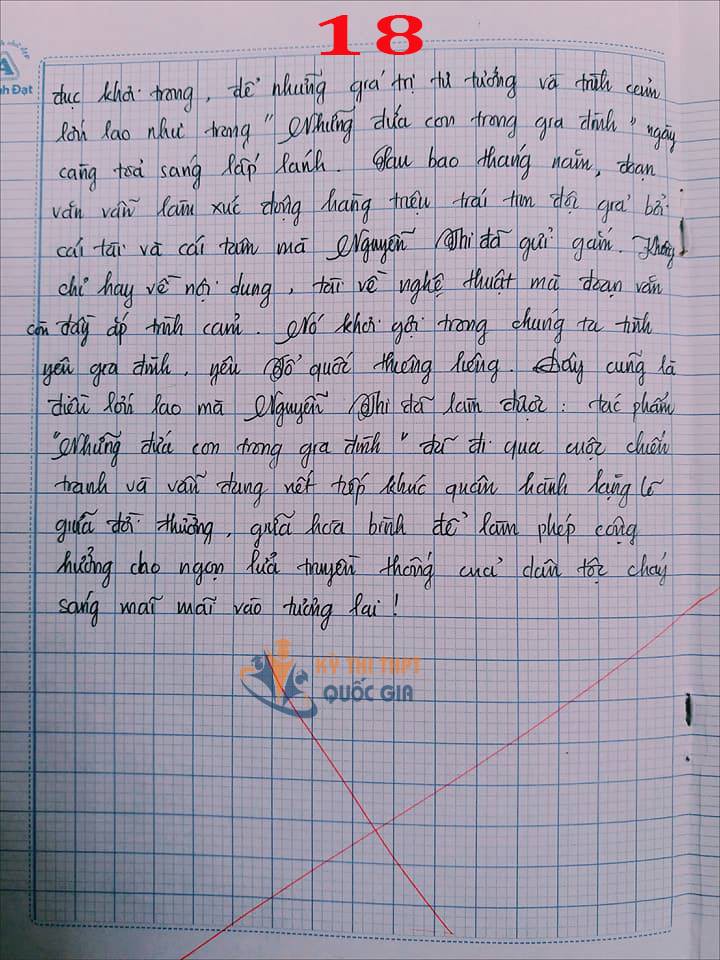 18
A
nh Đạt
đục khơi trong, để những giá trị tư tưởng và tình cảm
lớn lao như trong "Những đứa con trong gia đình" ngày
càng toả sáng lấp lánh. Sau bao tháng năm, đoạn
văn vẫn làm xúc động hàng triệu trái tim độc giả bởi
cái tài và cái tâm mà Nguyễn Thi đã gửi gắm. Không
chỉ hay về nội dung, tài về nghệ thuật mà đoạn văn
còn đầy ắp tình cảm. Nó khơi gợi trong chúng ta tình
yêu gia đình, yêu Tổ quốc thiêng liêng. Đây cũng là
điều lớn lao mà Nguyễn Thi đã làm được: tác phẩm
"Những đứa con trong gia đình" đã đi qua cuộc chiến
tranh và vẫn đang viết tiếp khúc quân hành lặng lẽ
giữa đời thường, giữa hoà bình để làm phép cộng
hưởng cho ngọn lửa truyền thống của dân tộc cháy
sáng mãi mãi vào tương lai!
KỲ THI THPT
QUỐC GIA